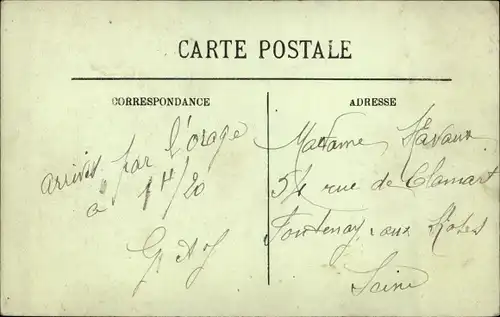 CARTE POSTALE
CORRESPONDANCE
arrivés par l'orage
a 1H/20
G A J
ADRESSE
Madame Havaux
54 rue de Clamart
Fontenay aux Roses
Seine